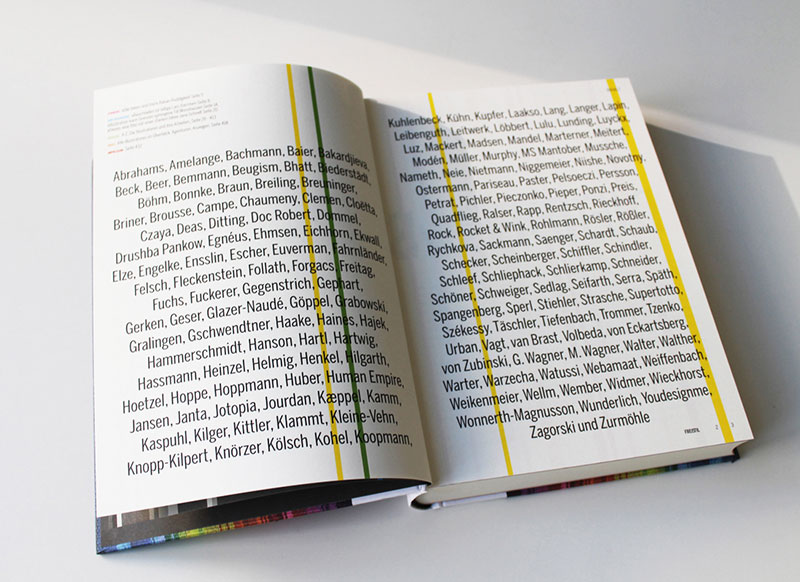 Abrahams, Amelange, Bachmann, Baier, Bakardjieva,
Beck, Beer, Bemmann, Beugism, Bhatt, Biederstädt,
Böhm, Bonnke, Braun, Breiling, Breuninger,
Briner, Brousse, Campe, Chaumeny, Clemen, Cloëtta,
Czaya, Deas, Ditting, Doc Robert, Dommel,
Drushba Pankow, Egnéus, Ehmsen, Eichhorn, Ekwall,
Elze, Engelke, Ensslin, Escher, Euverman, Fahrnländer,
Felsch, Fleckenstein, Follath, Forgacs, Freitag,
Fuchs, Fuckerer, Gegenstrich, Gephart,
Gerken, Geser, Glazer-Naudé, Göppel, Grabowski,
Gralingen, Gschwendtner, Haake, Haines, Hajek,
Hammerschmidt, Hanson, Hartl, Hartwig,
Hassmann, Heinzel, Helmig, Henkel, Hilgarth,
Hoetzel, Hoppe, Hoppmann, Huber, Human Empire,
Jansen, Janta, Jotopia, Jourdan, Kæppel, Kamm,
Kaspuhl, Kilger, Kittler, Klammt, Kleine-Vehn,
Knopp-Kilpert, Knörzer, Kölsch, Kohel, Koopmann,
Kuhlenbeck, Kühn, Kupfer, Laakso, Lang, Langer, Lapin,
Leibenguth, Leitwerk, Löbbert, Lulu, Lunding, Luyckx,
Luz, Mackert, Madsen, Mandel, Marterner, Meitert,
Modén, Müller, Murphy, MS Mantober, Mussche,
Nameth, Neie, Nietmann, Niggemeier, Niishe, Novotny,
Ostermann, Pariseau, Paster, Pelsoeczi, Persson,
Petrat, Pichler, Pieczonko, Pieper, Ponzi, Preis,
Quadflieg, Ralser, Rapp, Rentzsch, Rieckhoff,
Rock, Rocket & Wink, Rohlmann, Rösler, Rößler,
Rychkova, Sackmann, Saenger, Schardt, Schaub,
Schecker, Scheinberger, Schiffler, Schindler,
Schleef, Schliephack, Schlierkamp, Schneider,
Schöner, Schweiger, Sedlag, Seifarth, Serra, Späth,
Spangenberg, Sperl, Stiehler, Strasche, Supertotto,
Székessy, Täschler, Tiefenbach, Trommer, Tzenko,
Urban, Vagt, van Brast, Volbeda, von Eckartsberg,
von Zubinski, G. Wagner, M. Wagner, Walter, Walther,
Warter, Warzecha, Watussi, Webamaat, Weiffenbach,
Weikenmeier, Wellm, Wember, Widmer, Wieckhorst,
Wonnerth-Magnusson, Wunderlich, Youdesignme,
Zagorski und Zurmöhle
FREISTIL 2 3